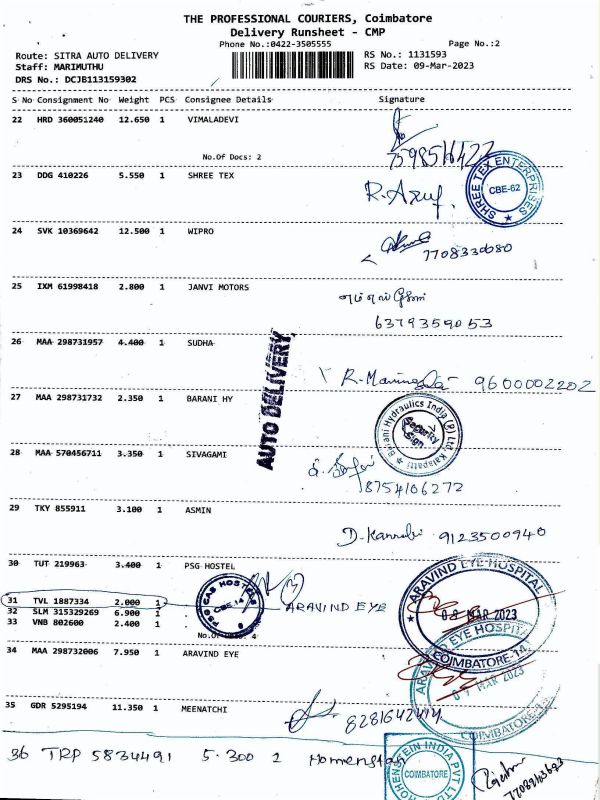 THE PROFESSIONAL COURIERS, Coimbatore
Delivery Runsheet - CMP
Phone No.:0422-3505555
Page No.:2
Route: SITRA AUTO DELIVERY
RS No.: 1131593
Staff: MARIMUTHU
RS Date: 09-Mar-2023
DRS No.: DCJB113159302
S No Consignment No Weight PCS Consignee Details Signature
22 HRD 360051240 12.650 1 VIMALADEVI
No.Of Docs: 2
23 DDG 410226 5.550 1 SHREE TEX
R.
SHREE TEX ENTERPRISES
CBE-62
24 SVK 10369642 12.500 1 WIPRO
7708330080
25 IXM 61998418 2.800 1 JANVI MOTORS
6379359053
26 MAA 298731957 4.400 1 SUDHA
AUTO DELIVERY
R. 9600002202
27 MAA 298731732 2.350 1 BARANI HY
Barani Hydraulics India (P) Ltd, Kalapatti
Security Sign
28 MAA 570456711 3.350 1 SIVAGAMI
8754106272
29 TKY 855911 3.100 1 ASMIN
D. 9123500940
30 TUT 219963 3.400 1 PSG HOSTEL
31 TVL 1887334 2.000 1 ARAVIND EYE
PSG CAS HOSTELS
CBE-14
32 SLM 315329269 6.900 1
33 VNB 802600 2.400 1
No.Of 4
ARAVIND EYE HOSPITAL
08 MAR 2023
COIMBATORE-14
EYE HOSPITAL
34 MAA 298732006 7.950 1 ARAVIND EYE
MAR 2023
COIMBATORE
35 GDR 5295194 11.350 1 MEENATCHI
36 TRP 5834491 5.300 2
HOHENSTEIN INDIA PVT LTD
COIMBATORE